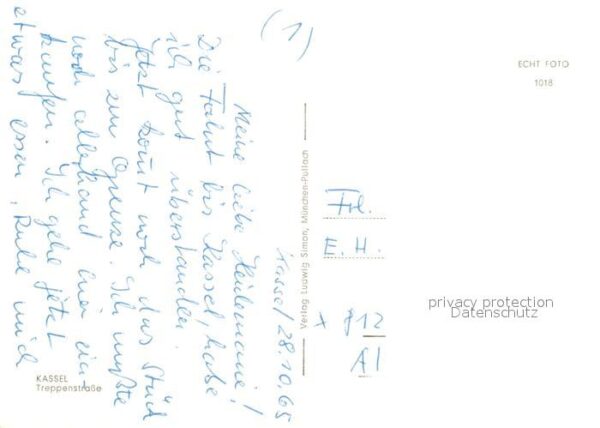 (1)
Kassel 28.10.65
Meine liebe Heidemarie!
Die Fahrt bis Kassel, habe
ich gut überstanden.
Jetzt kommt noch das Stück
bis zur Grenze. Ich mußte
noch allerhand hier ein-
kaufen. Ich gehe jetzt
etwas essen, Ruhe mich
KASSEL
Treppenstraße
Verlag Ludwig Simon, München-Pullach
ECHT FOTO
1018
Frl.
E. H.
x 912
A1
privacy protection
Datenschutz